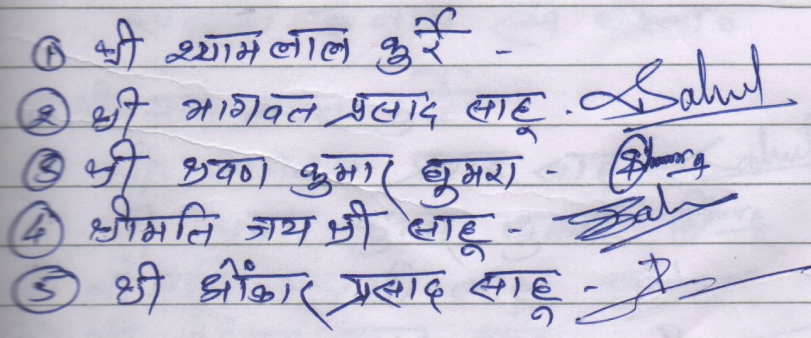 ① श्री श्यामलाल कुर्रे -
② श्री भागवत प्रसाद साहू - Sahu
③ श्री श्रवण कुमार घुमरा -
④ श्रीमति जय श्री साहू - Sah
⑤ श्री ओंकार प्रसाद साहू -